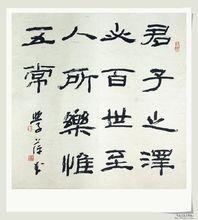 君子之澤
必百世至
人所樂惟
五常